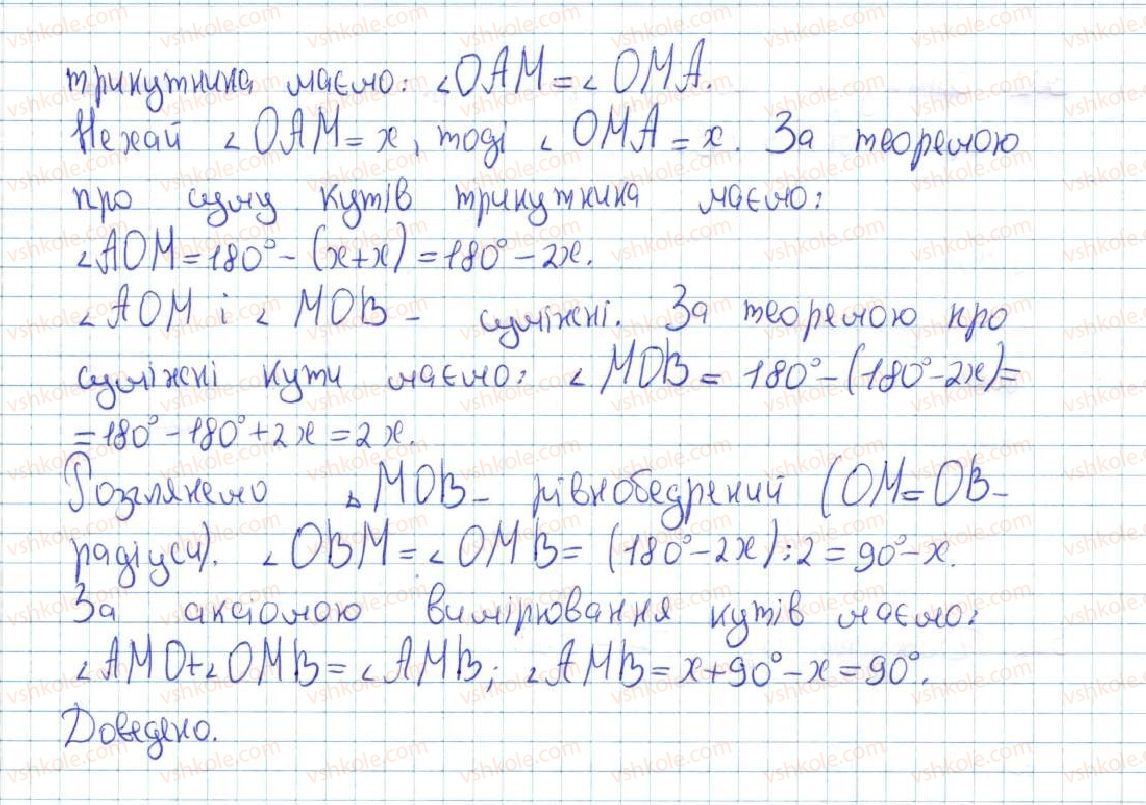 трикутника маємо: ∠OAM = ∠OMA.
Нехай ∠OAM = x, тоді ∠OMA = x. За теоремою
про суму кутів трикутника маємо:
∠AOM = 180° - (x+x) = 180° - 2x.
∠AOM і ∠MOB - суміжні. За теоремою про
суміжні кути маємо: ∠MOB = 180° - (180° - 2x) =
= 180° - 180° + 2x = 2x.
Розглянемо △MOB - рівнобедрений (OM = OB -
радіуси). ∠OBM = ∠OMB = (180° - 2x) : 2 = 90° - x.
За аксіомою вимірювання кутів маємо:
∠AMO + ∠OMB = ∠AMB; ∠AMB = x + 90° - x = 90°.
Доведено.